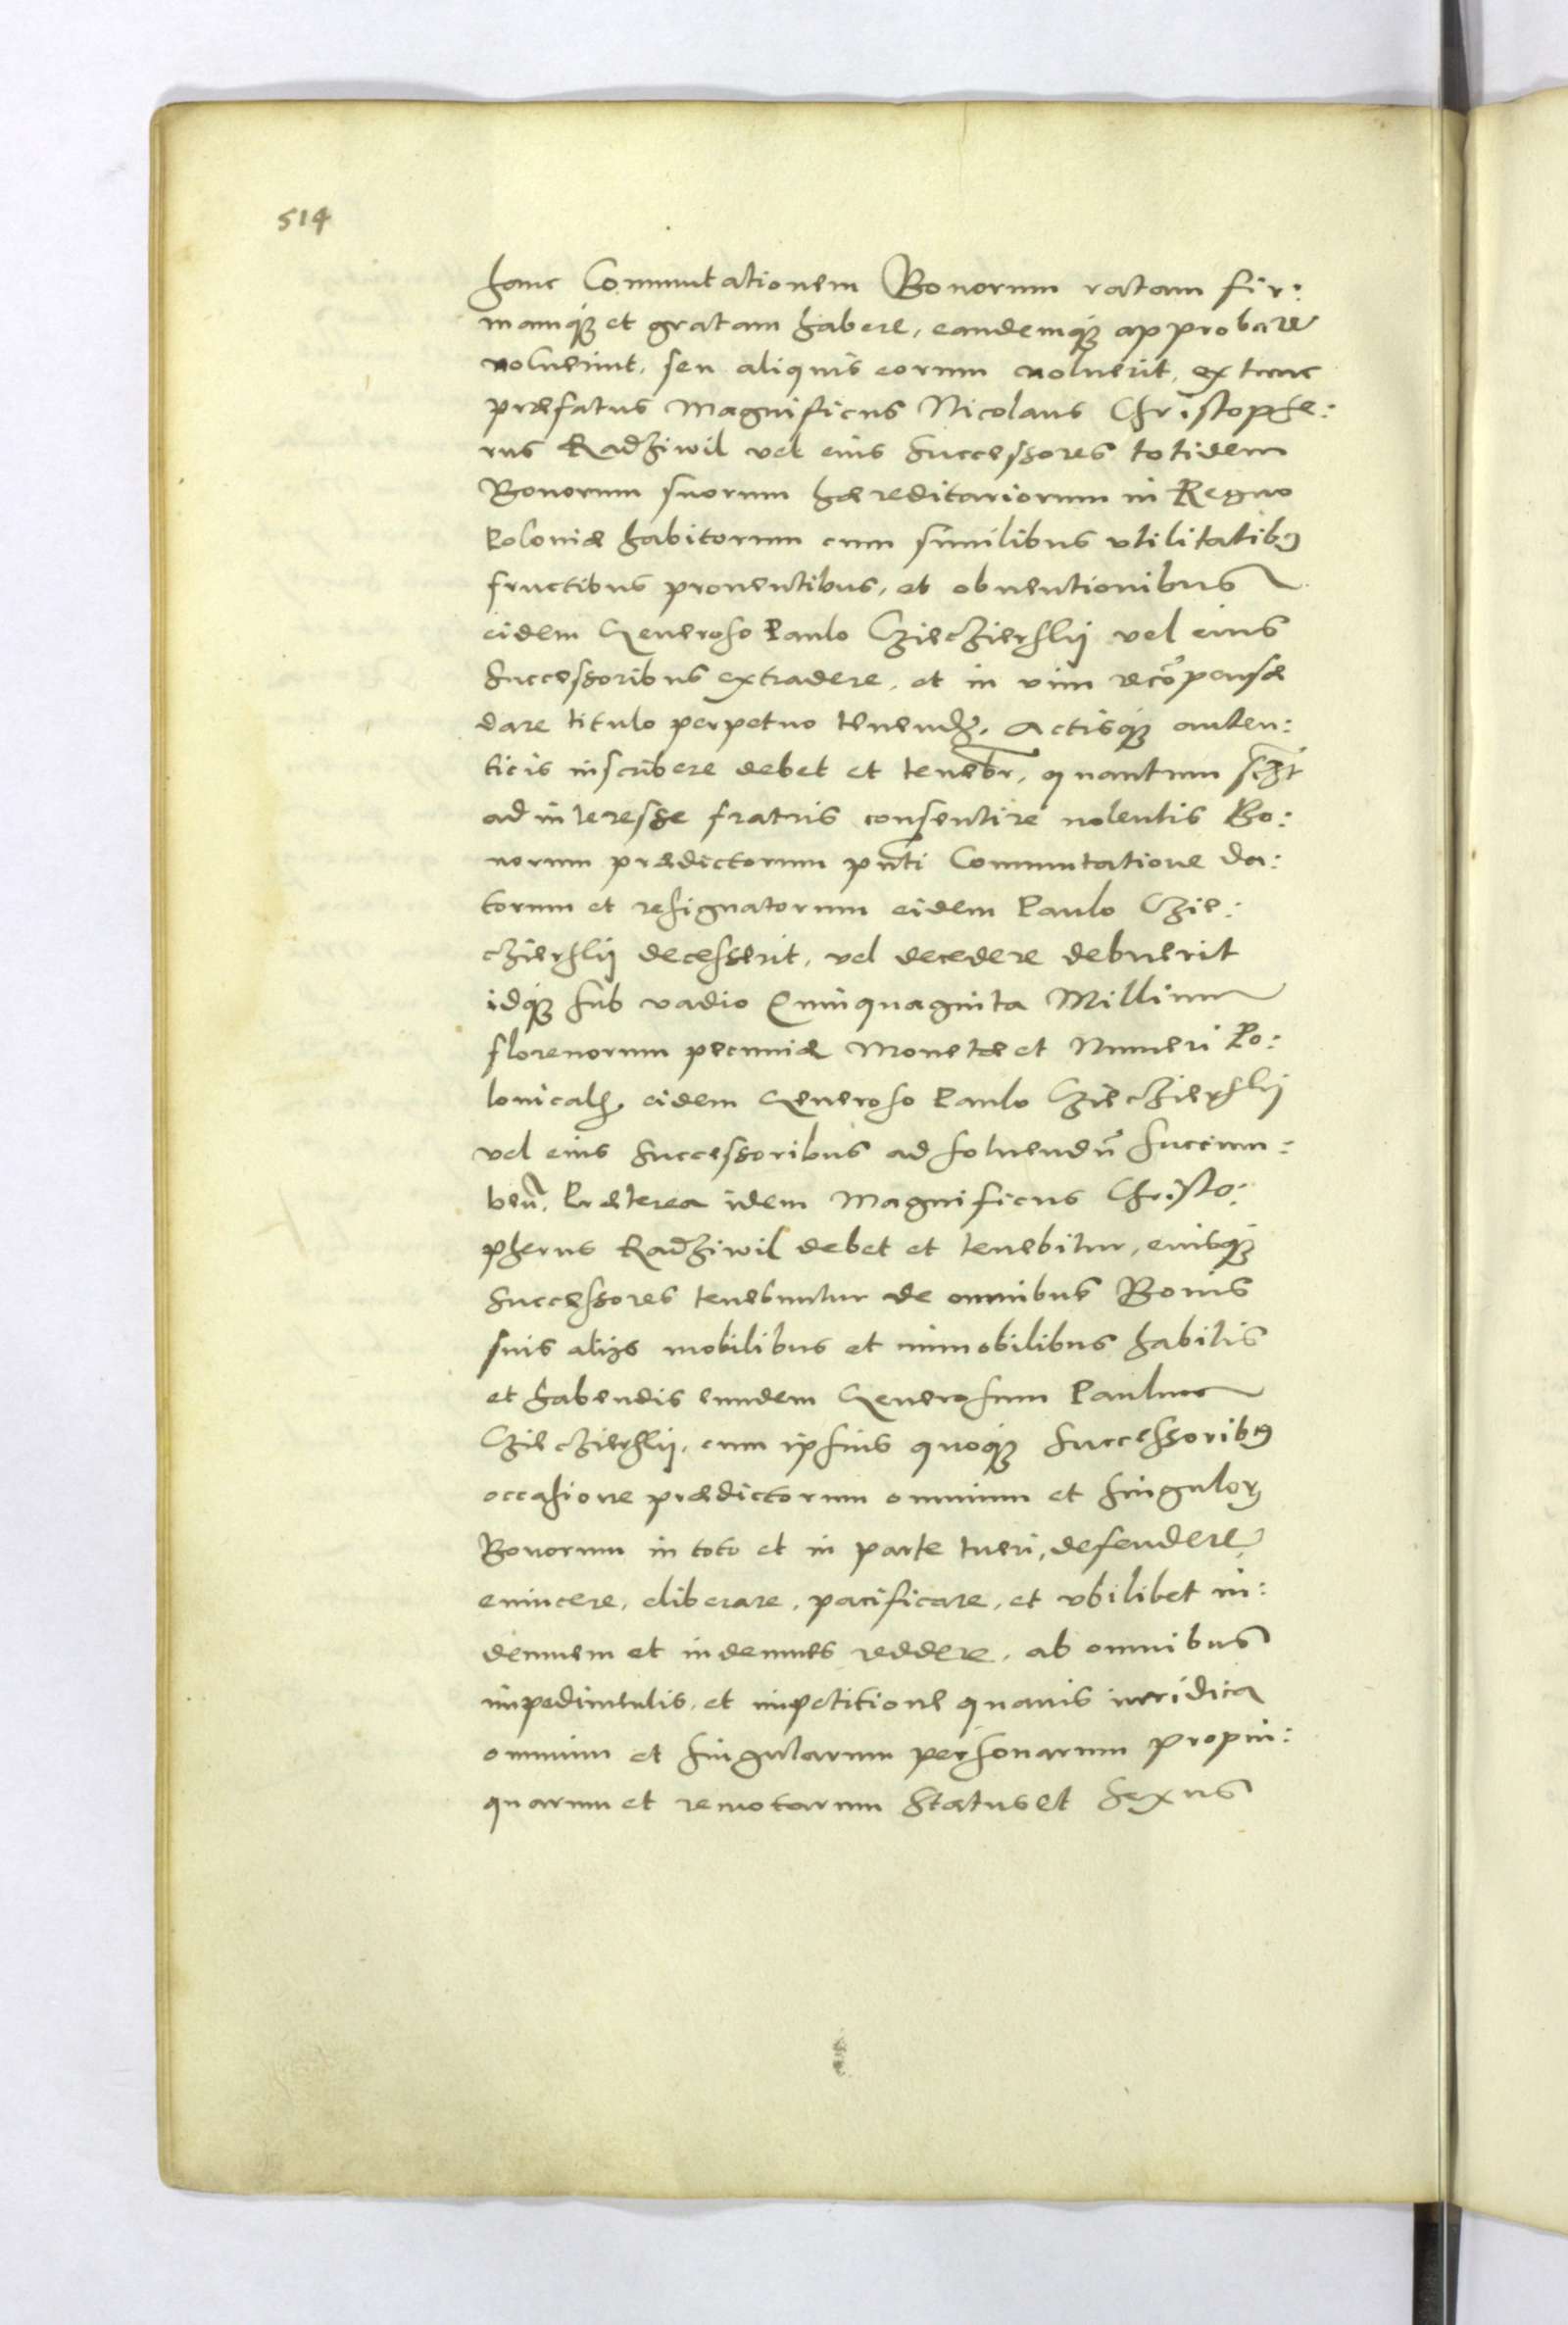 514
hanc Commutationem Bonorum ratam fir:
mamq́ue et gratam habere, eandemq́ue approbare
noluerint, seu aliquis eorum noluerit, ex tunc
præfatus Magnificus Nicolaus Christophe:
rus Radziwil vel eius Successores totidem
Bonorum suorum hæreditariorum in Regno
Poloniæ habitorum cum similibus vtilitatibꝰ
fructibus prouentibus, et obuentionibus
eidem Generoso Paulo Czieczierskij vel eius
Successoribus extradere, et in vim recõpensæ
dare titulo perpetuo tenend. Actisq́ue auten:
ticis inscribere debet et tenebr, quantum scʒt
ad interesse fratris consentire nolentis Bo:
norum prædictorum pñti Commutatione da:
torum et resignatorum eidem Paulo Czie:
czierskij decesserit, vel decedere debuerit
idq́ue sub vadio Quinquaginta Millium
florenorum pecuniæ Monetæ et Numeri Po:
lonical. eidem Generoso Paulo Czieczierskij
vel eius Successoribus ad soluendũ succum:
beñ. Præterea idem Magnificus Christo:
pherus Radziwil debet et tenebitur, eiusq́ue
Successores tenebuntur de omnibus Bonis
suis alijs mobilibus et immobilibus habitis
et habendis eundem Generosum Paulum
Czieczierskij, cum ipsius quoq́ue Successoribꝰ
occasione prædictorum omnium et singulorꝫ
Bonorum in toto et in parte tueri, defendere,
euincere, eliberare, pacificare, et vbilibet in:
demnem et indemnes reddere, ab omnibus
impedimentis, et impetitione quauis iuridica
omnium et singularum personarum propin:
quarum et remotarum Status et sexus